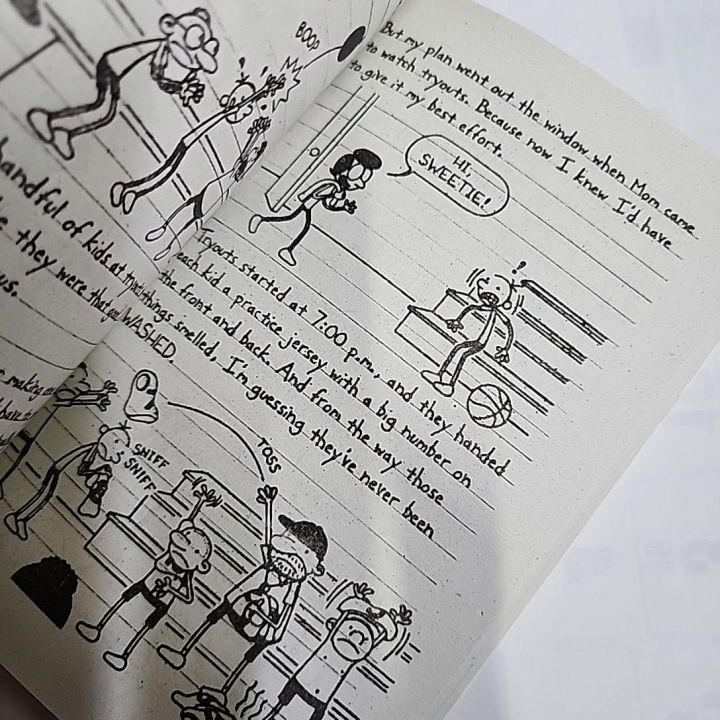 BOOP
handful of kids at
they were that
us.
making
But my plan went out the window when Mom came
to watch tryouts. Because now I knew I'd have
to give it my best effort.
HI,
SWEETIE!
Tryouts started at 7:00 p.m., and they handed
each kid a practice jersey with a big number on
the front and back. And from the way those
things smelled, I'm guessing they've never been
WASHED.
SNIFF
SNIFF
TOSS